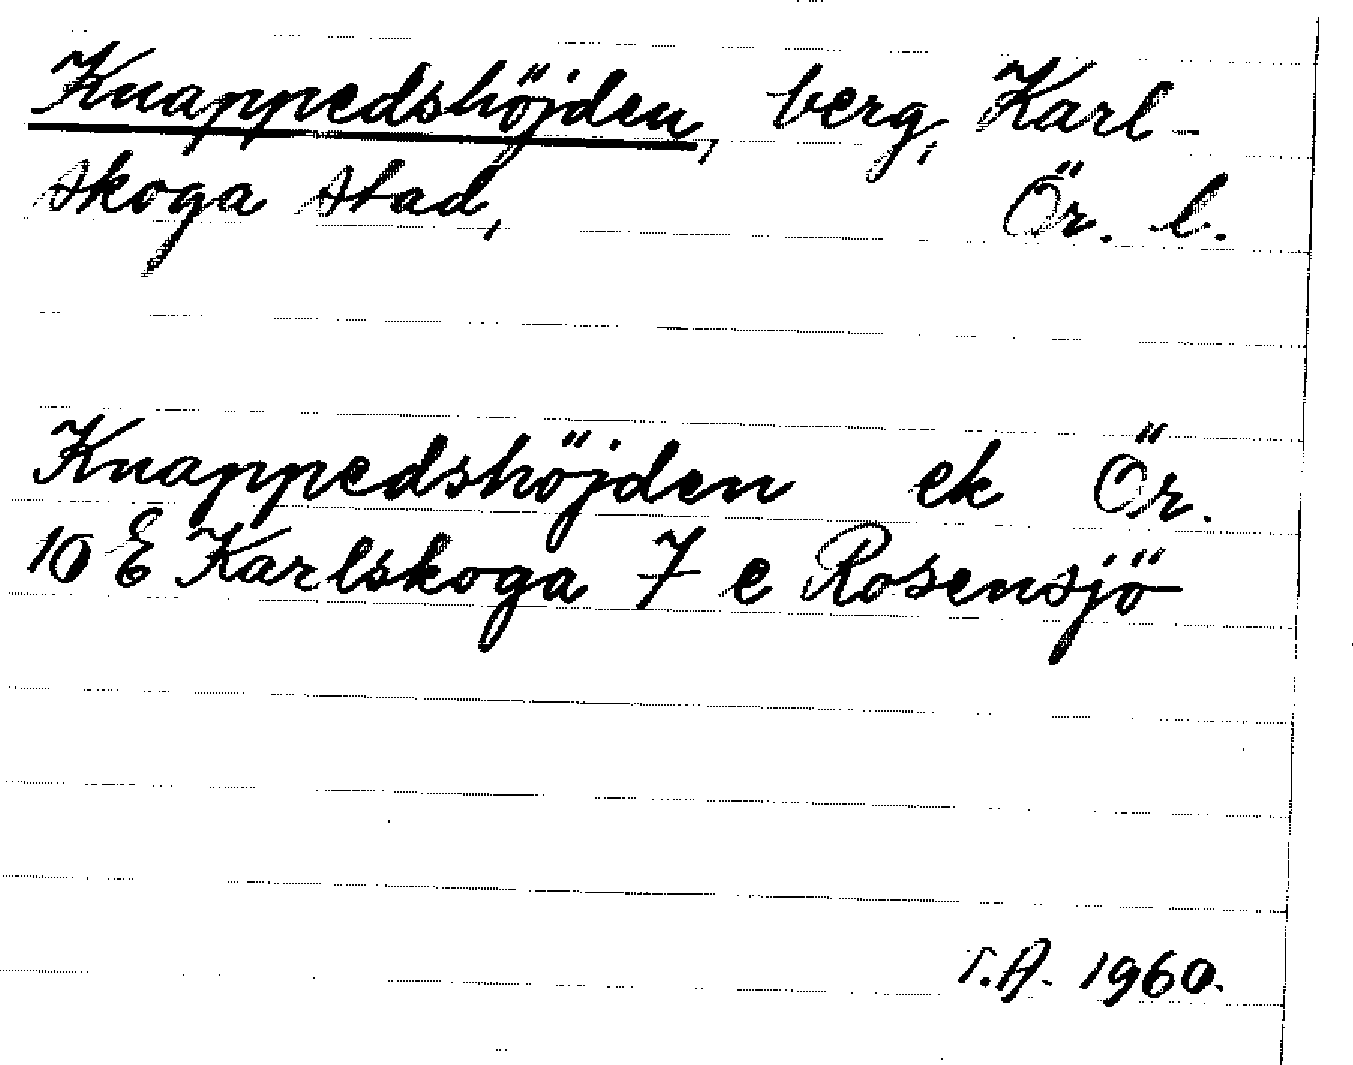 Knappedshöjden, berg, Karl-
skoga stad, Ör. l.
Knappedshöjden ek Ör.
10 E Karlskoga 7 e Rosensjö
T.A. 1960.